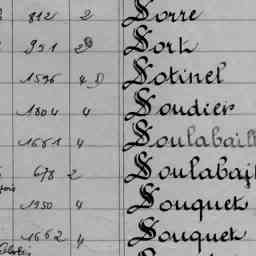 812 2 Sorre
951 2 Sort
1596 4 Sotinel
1804 4 Soudier
1681 4 Soulabaill
678 2 Soulabail
1950 4 Souquet
1662 4 Souquet